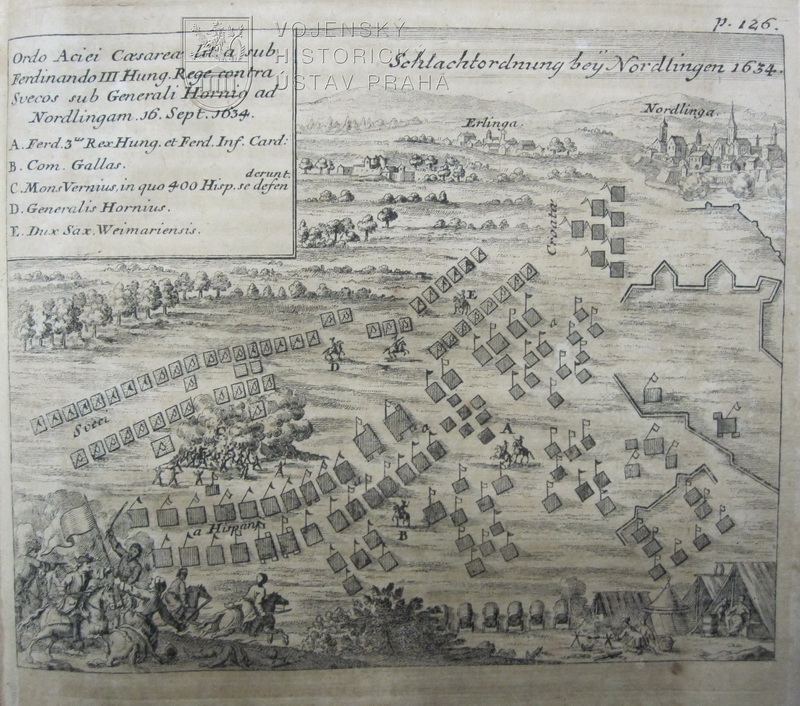 p. 126.
VOJENSKÝ
HISTORICKÝ
ÚSTAV PRAHA
Ordo Aciei Cæsareæ lit. a sub
Ferdinando III Hung. Rege contra
Svecos sub Generali Hornio ad
Nordlingam. 16. Sept. 1634.
A. Ferd. 3us Rex Hung. et Ferd. Inf. Card:
B. Com. Gallas.
C. Mons Vernius, in quo 400 Hisp. se defen
derunt.
D. Generalis Hornius.
E. Dux Sax. Weimariensis.
Schlachtordnung beÿ Nordlingen 1634.
Erlinga.
Nordlinga.
Croatæ
E
a
D
Sveci
C
a
A
a Hispani
B